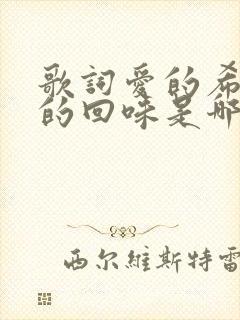 歌詞愛的希
的回味是那
西尔維斯特雷